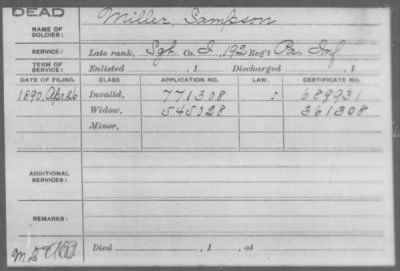 DEAD
NAME OF SOLDIER: Miller, Sampson
SERVICE: Late rank, Sgt. Co. I, 192 Reg't Pa. Inf
TERM OF SERVICE: Enlisted , 1 Discharged , 1
DATE OF FILING. CLASS APPLICATION NO. LAW. CERTIFICATE NO.
1890, Apr. 26 Invalid, 771308 689931
Widow, 545028 361308
Minor,
ADDITIONAL SERVICES:
REMARKS:
Died , 1 , at